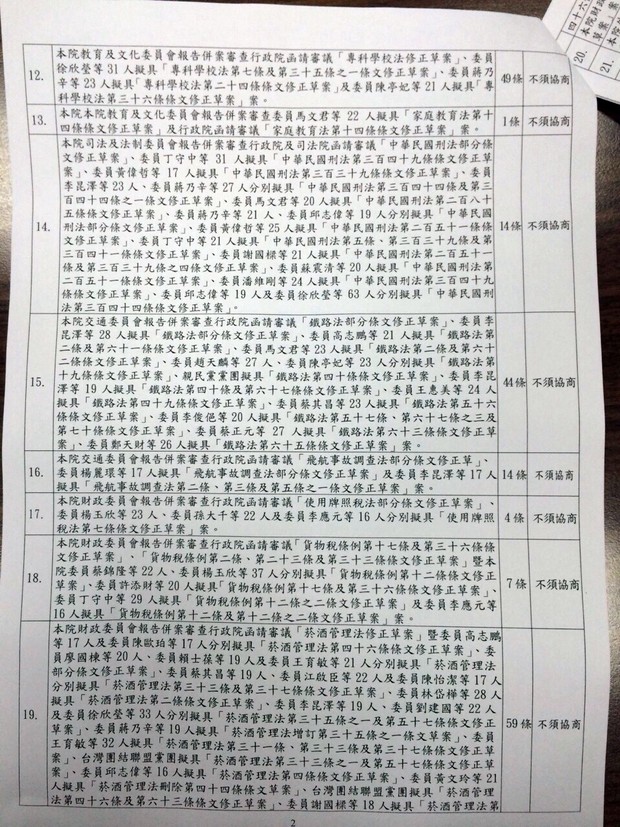 四十六
本院財政
草案
20.
本院
21.
12.
本院教育及文化委員會報告併案審查行政院函請審議「專科學校法修正草案」、委員
徐欣瑩等 31 人擬具「專科學校法第七條及第三十五條之一條文修正草案」、委員蔣乃
辛等 23 人擬具「專科學校法第二十四條條文修正草案」及委員陳亭妃等 21 人擬具「專
科學校法第三十六條條文修正草案」案。
49 條
不須協商
13.
本院本院教育及文化委員會報告併案審查委員馬文君等 22 人擬具「家庭教育法第十
四條條文修正草案」及行政院函請審議「家庭教育法第十四條條文修正草案」案。
1 條
不須協商
14.
本院司法及法制委員會報告併案審查行政院及司法院函請審議「中華民國刑法部分條
文修正草案」、委員丁守中等 31 人擬具「中華民國刑法第三百四十九條條文修正草
案」、委員黃偉哲等 17 人擬具「中華民國刑法第三百三十九條條文修正草案」、委員
李昆澤等 23 人、委員蔣乃辛等 27 人分別擬具「中華民國刑法第三百四十四條及第三
百四十四條之一條文修正草案」、委員馬文君等 20 人擬具「中華民國刑法第二百八十
五條條文修正草案」、委員蔣乃辛等 21 人、委員邱志偉等 19 人分別擬具「中華民國
刑法部分條文修正草案」、委員黃偉哲等 25 人擬具「中華民國刑法第二百五十一條條
文修正草案」、委員丁守中等 21 人擬具「中華民國刑法第五條、第三百三十九條及第
三百四十一條條文修正草案」、委員謝國樑等 21 人擬具「中華民國刑法第二百五十一
條及第三百三十九條之四條文修正草案」、委員蘇震清等 20 人擬具「中華民國刑法第
二百五十一條條文修正草案」、委員潘維剛等 24 人擬具「中華民國刑法第三百四十九
條條文修正草案」、委員邱志偉等 19 人及委員徐欣瑩等 63 人分別擬具「中華民國刑
法第三百四十四條條文修正草案」案。
14 條
不須協商
15.
本院交通委員會報告併案審查行政院函請審議「鐵路法部分條文修正草案」、委員李
昆澤等 28 人擬具「鐵路法部分條文修正草案」、委員高志鵬等 21 人擬具「鐵路法第
二條及第六十一條條文修正草案」、委員馬文君等 23 人擬具「鐵路法第二條及第六十
二條條文修正草案」、委員趙天麟等 27 人、委員陳亭妃等 23 人分別擬具「鐵路法第
十九條條文修正草案」、親民黨黨團擬具「鐵路法第四十條條文修正草案」、委員李昆
澤等 19 人擬具「鐵路法第四十條及第六十七條條文修正草案」、委員王惠美等 24 人
擬具「鐵路法第四十九條條文修正草案」、委員蔡其昌等 23 人擬具「鐵路法第五十六
條條文修正草案」、委員李俊俋等 20 人擬具「鐵路法第五十七條、第六十七條之三及
第七十條條文修正草案」、委員蔡正元等 27 人擬具「鐵路法第六十三條條文修正草
案」、委員鄭天財等 26 人擬具「鐵路法第六十五條條文修正草案」案。
44 條
不須協商
16.
本院交通委員會報告併案審查行政院函請審議「飛航事故調查法部分條文修正草」、
委員楊麗環等 17 人擬具「飛航事故調查法部分條文修正草案」及委員李昆澤等 17 人
擬具「飛航事故調查法第二條、第三條及第五條之一條文修正草案」案。
14 條
不須協商
17.
本院財政委員會報告併案審查行政院函請審議「使用牌照稅法部分條文修正草案」、
委員楊玉欣等 23 人、委員孫大千等 22 人及委員李應元等 16 人分別擬具「使用牌照
稅法第七條條文修正草案」案。
4 條
不須協商
18.
本院財政委員會報告併案審查行政院函請審議「貨物稅條例第十七條及第三十六條條
文修正草案」、「貨物稅條例第二條、第二十三條及第三十三條條文修正草案」暨本
院委員蔡錦隆等 22 人、委員楊玉欣等 37 人分別擬具「貨物稅條例第十二條條文修正
草案」、委員許添財等 20 人擬具「貨物稅條例第十七條及第三十六條條文修正草案」、
委員丁守中等 29 人擬具「貨物稅條例第十二條之二條文修正草案」及委員李應元等
16 人擬具「貨物稅條例第十二條及第十二條之二條文修正草案」案。
7 條
不須協商
19.
本院財政委員會報告併案審查行政院函請審議「菸酒管理法修正草案」暨委員高志鵬
等 17 人及委員陳歐珀等 17 人分別擬具「菸酒管理法第四十六條條文修正草案」、委
員廖國棟等 20 人、委員賴士葆等 19 人及委員王育敏等 21 人分別擬具「菸酒管理法
部分條文修正草案」、委員蔡其昌等 19 人、委員江啟臣等 22 人及委員陳怡潔等 17 人
分別擬具「菸酒管理法第三十三條及第三十七條條文修正草案」、委員林岱樺等 28 人
擬具「菸酒管理法第二條條文修正草案」、委員李昆澤等 19 人、委員劉建國等 22 人
及委員徐欣瑩等 33 人分別擬具「菸酒管理法第三十五條之一及第五十七條條文修正
草案」、委員蔣乃辛等 19 人擬具「菸酒管理法增訂第三十五條之一條文草案」、委員
王育敏等 32 人擬具「菸酒管理法第三十一條、第三十三條及第三十七條條文修正草
案」、台灣團結聯盟黨團擬具「菸酒管理法第三十三條及第五十七條條文修正草案」、
委員邱志偉等 16 人擬具「菸酒管理法第四條條文修正草案」、委員黃文玲等 21 人擬具
「菸酒管理法刪除第四十四條條文草案」、台灣團結聯盟黨團擬具「菸酒管理
法第四十六條及第六十三條條文修正草案」、委員謝國樑等 18 人擬具「菸酒管理法第
59 條
不須協商
2